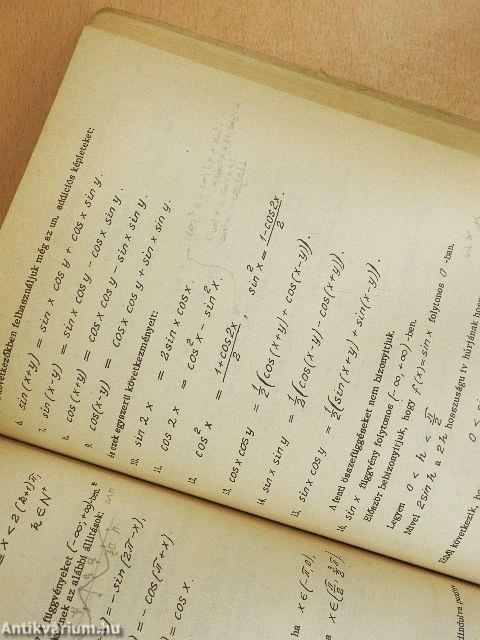 következőkben felhasználjuk még az un. addiciós képleteket:
6. sin(x+y) = sin x cos y + cos x sin y.
7. sin(x-y) = sin x cos y - cos x sin y.
8. cos(x+y) = cos x cos y - sin x sin y.
9. cos(x-y) = cos x cos y + sin x sin y.
és ezek egyszerű következményeit:
10. sin 2x = 2 sin x cos x
11. cos 2x = cos² x - sin² x.
12. cos² x = (1+cos 2x)/2, sin² x = (1-cos 2x)/2.
13. cos x cos y = 1/2 (cos(x+y) + cos(x-y)).
14. sin x sin y = 1/2 (cos(x-y) - cos(x+y)).
15. sin x cos y = 1/2 (sin(x+y) + sin(x-y)).
A fenti összefüggéseket nem bizonyitjuk.
16. sin x függvény folytonos (-∞, +∞)-ben.
Először bebizonyitjuk, hogy f(x) = sin x folytonos 0-ban.
Legyen 0 < h < π/2
Mivel 2 sin h a 2h hosszuságu ív húrjának
következik,
0 <
x < 2(k+1)π,
k ∈ N⁺
függvényeket (-∞; +∞)-ben
az alábbi állitások:
= - sin(2π-x),
= - cos(π+x).
= cos x.
ha x ∈ (-π, 0),
Antikvarium.hu